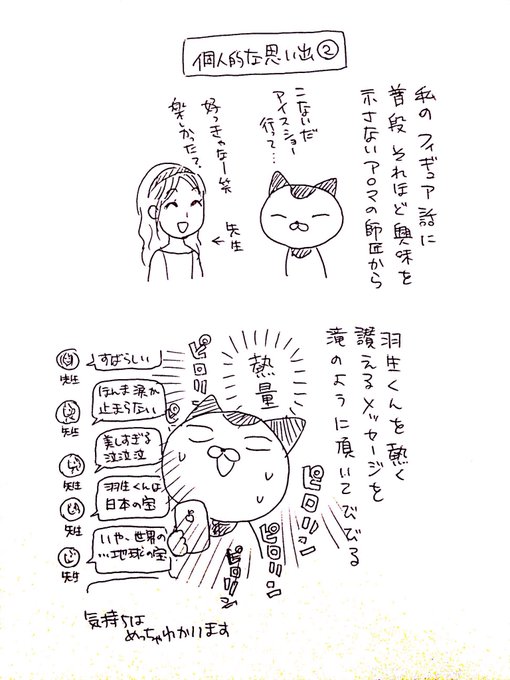 個人的な思い出②
私のフィギュア話に
普段それほど興味を
示さないアロマの師匠から
こないだ
アイスショー
行って…
好っきゃなー笑
楽しかった？
←先生
羽生くんを熱く
讃えるメッセージを
滝のように頂いてびびる
熱量
ピロリン
ピロリン
ピロリン
ピロリン
ピ
すばらしい
先生
ほんま涙が
止まらない
先生
美しすぎる
泣泣泣
先生
羽生くんは
日本の宝
先生
いや、世界の
…地球の宝
先生
気持ちは
めっちゃわかいます